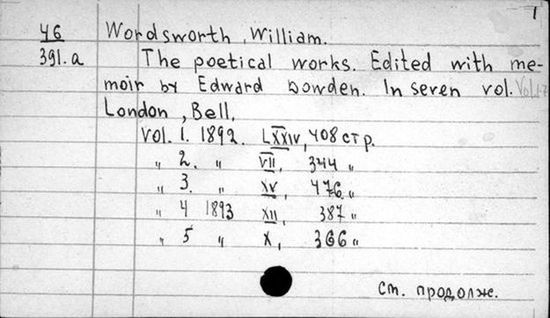 1
46 Wordsworth, William.
391.a The poetical works. Edited with me-
moir by Edward Dowden. In seven vol. Vol. 1-7
London, Bell,
Vol. 1. 1892. LXXIV, 408 стр.
" 2. " VII, 344 "
" 3. " XV, 476 "
" 4 1893 XII, 387 "
" 5 " X, 366 "
См. продолж.